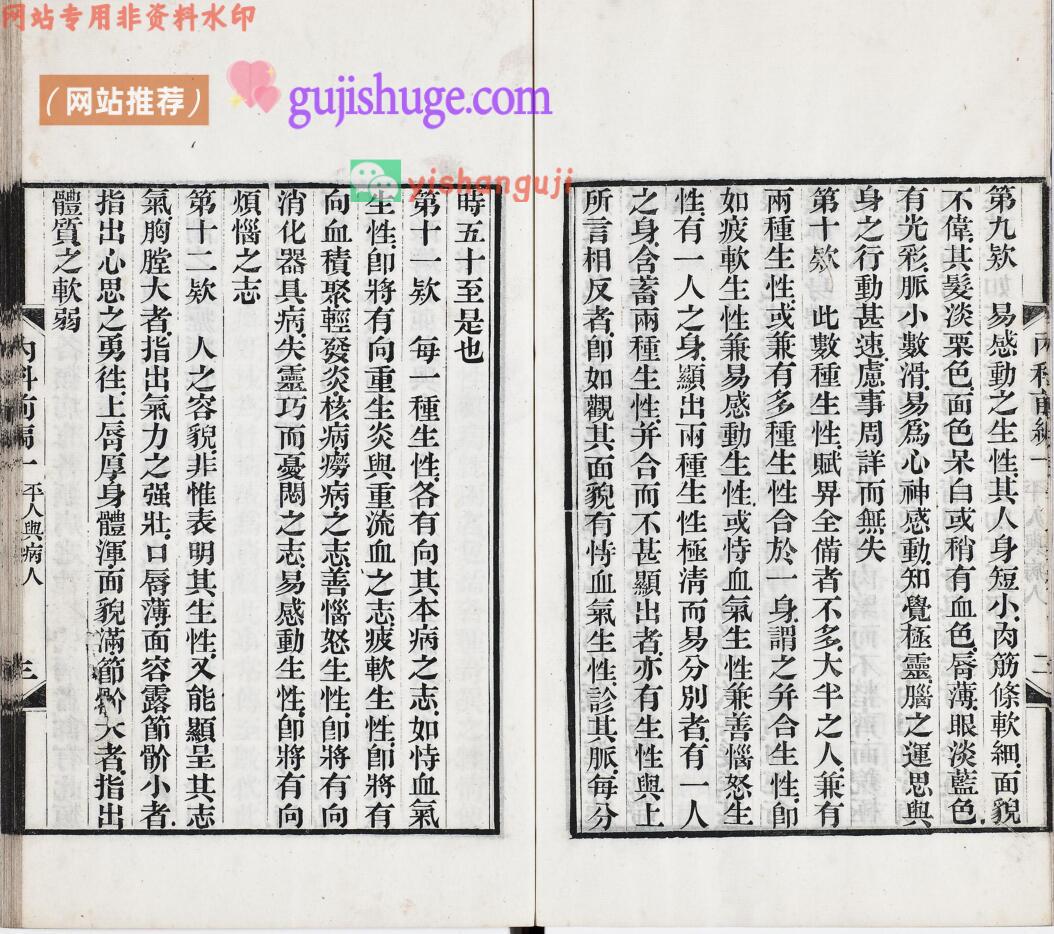 网站专用非资料水印
（网站推荐）
gujishuge.com
yishanguji
第九欵　易感動之生性、其人身短小、肉筋條軟細、面貌
不偉、其髮淡栗色、面色呆白或稍有血色、唇薄、眼淡藍色、
有光彩、脈小數滑、易爲心神感動、知覺極靈、腦之運思與
身之行動甚速、慮事周詳而無失
第十欵　此數種生性、賦畀全備者不多、大半之人、兼有
兩種生性、或兼有多種生性、合於一身、謂之并合生性、卽
如疲軟生性兼易感動生性、或恃血氣生性兼善惱怒生
性、有一人之身、顯出兩種生性極清而易分別者、有一人
之身、含蓄兩種生性、并合而不甚顯出者、亦有生性與上
所言相反者、卽如觀其面貌有恃血氣生性、診其脈、每分
時五十至是也
第十一欵　每一種生性、各有向其本病之志、如恃血氣
生性、卽將有向重生炎與重流血之志、疲軟生性、卽將有
向血積聚輕發炎、核病癆病之志、善惱怒生性、卽將有向
消化器具病、失靈巧而憂悶之志、易感動生性、卽將有向
煩惱之志
第十二欵　人之容貌、非惟表明其生性、又能顯呈其志
氣、胸膛大者、指出氣力之强壯、口唇薄面容露節骱小者、
指出心思之勇徃、上唇厚身體渾、面貌滿、節骱大者、指出
體質之軟弱
內科 一 平人與病人 三